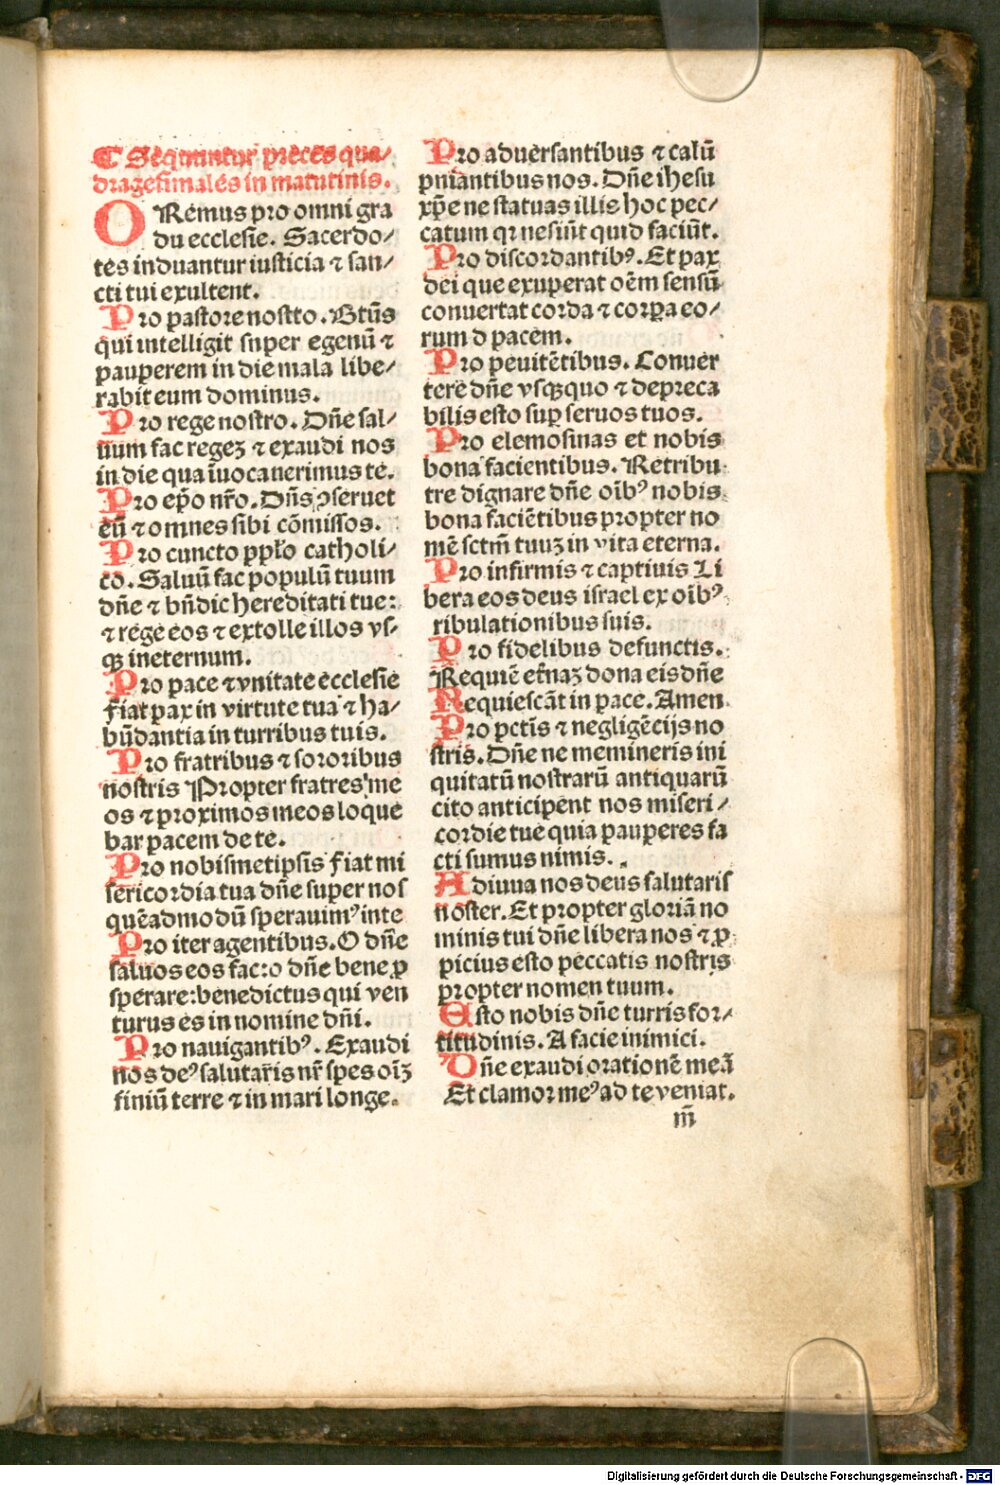 ¶ Sequuntur preces qua/
dragesimales in matutinis.
ORemus pro omni gra
du ecclesie. Sacerdo/
tes induantur iusticia ⁊ san/
cti tui exultent.
Pro pastore nostro. Btūs
qui intelligit super egenū ⁊
pauperem in die mala libe/
rabit eum dominus.
Pro rege nostro. Dn̄e sal/
uum fac regeꝫ ⁊ exaudi nos
in die qua īuocauerimus te.
Pro ep̄o nr̄o. Dn̄s ꝯseruet
eū ⁊ omnes sibi cōmissos.
Pro cuncto ppl̄o catholi/
co. Saluū fac populū tuum
dn̄e ⁊ bn̄dic hereditati tue:
⁊ rege eos ⁊ extolle illos vs/
qꝫ ineternum.
Pro pace ⁊ vnitate ecclesie
Fiat pax in virtute tua ⁊ ha/
būdantia in turribus tuis.
Pro fratribus ⁊ sororibus
nostris Propter fratres me
os ⁊ proximos meos loque
bar pacem de te.
Pro nobismetipsis Fiat mi
sericordia tua dn̄e super nos
quēadmodū sperauimꝰ inte
Pro iter agentibus. O dn̄e
saluos eos fac: o dn̄e bene ꝓ
sperare: benedictus qui ven
turus es in nomine dn̄i.
Pro nauigantibꝰ. Exaudi
nos deꝰ salutar̄is nr̄ spes oīꝫ
finiū terre ⁊ in mari longe.
Pro aduersantibus ⁊ calū
pniantibus nos. Dn̄e ihesu
xp̄e ne statuas illis hoc pec/
catum qꝛ nesiūt quid faciūt.
Pro discordantibꝰ. Et pax
dei que exuperat oēm sensū
conuertat corda ⁊ corꝑa eo/
rum d pacem.
Pro peuitētibus. Conuer
tere dn̄e vsqꝫquo ⁊ depreca
bilis esto suꝑ seruos tuos.
Pro elemosinas et nobis
bona facientibus. Retribu
tre dignare dn̄e oībꝰ nobis
bona faciētibus propter no
mē sctm̄ tuuꝫ in vita eterna.
Pro infirmis ⁊ captiuis Li
bera eos deus israel ex oībꝰ
ribulationibus suis.
Pro fidelibus defunctis.
Requiē et̄naꝫ dona eis dn̄e
Requiescāt in pace. Amen
Pro pctīs ⁊ negligēcijs no
stris. Dn̄e ne memineris ini
quitatū nostrarū antiquarū
cito anticipent nos miseri/
cordie tue quia pauperes fa
cti sumus nimis.
Adiuua nos deus salutaris
noster. Et propter gloriā no
minis tui dn̄e libera nos ⁊ ꝓ
picius esto peccatis nostris
propter nomen tuum.
Esto nobis dn̄e turris for/
titudinis. A facie inimici.
Dn̄e exaudi orationē meā
Et clamor meꝰ ad te veniat.
m̄
Digitalisierung gefördert durch die Deutsche Forschungsgemeinschaft - DFG